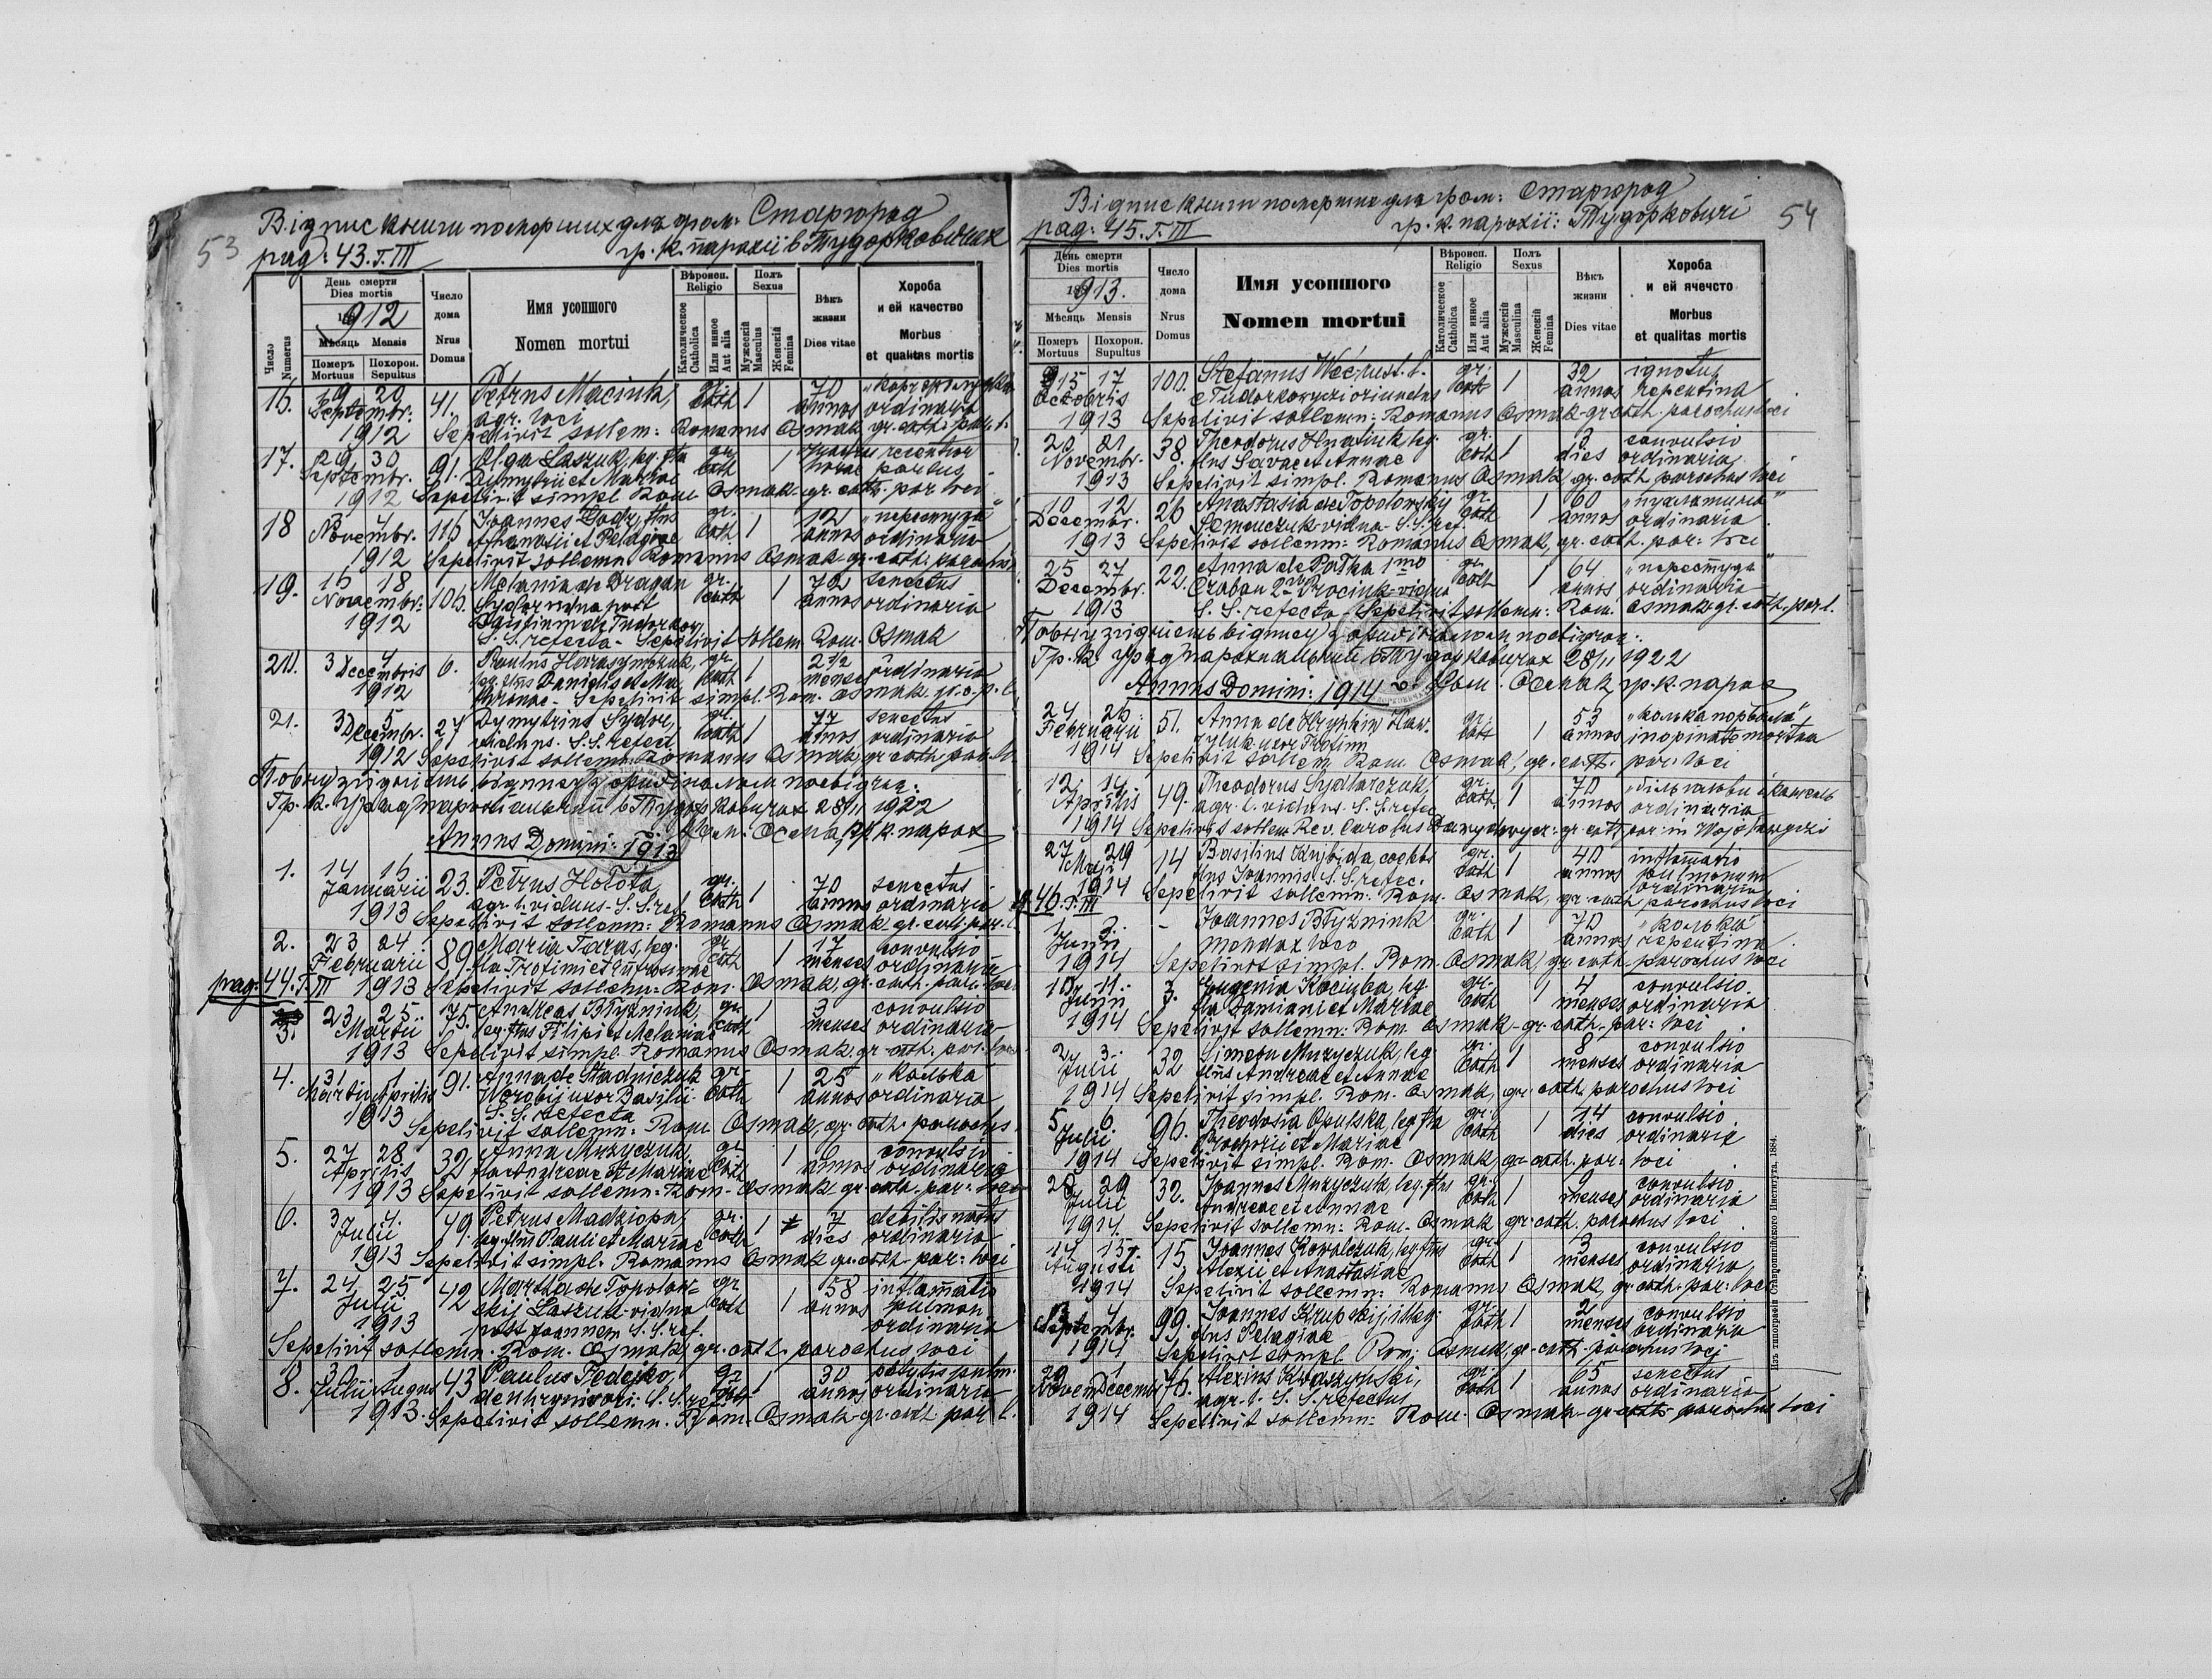 53
Відпис книги померших для гром: Старгород
гр. к. парохії в Тудорковичах
pag: 43. T. III
Число Numerus
День смерти Dies mortis
1912
Мѣсяць Mensis
Померъ Mortuus
Похорон. Sepultus
Число дома Nrus Domus
Имя усопшого
Nomen mortui
Вѣроисп. Religio
Католическое Catholica
Или инное Aut alia
Полъ Sexus
Мужескій Masculus
Женскій Femina
Вѣкъ жизни Dies vitae
Хороба и ей качество
Morbus et qualitas mortis
16. 19 20 41. Petrus Maciuk, gr. 1 70
Septembr. agr. loci cath annos ordinaria
1912 Sepelivit sollem: Romanus Osmak gr. cath. par. l.
17. 29 30 91. Olga Laszuk, leg. fla gr. 1
Septembr. Dymytrii et Mariae cath horae partus
1912 Sepelivit simpl. Rom. Osmak gr. cath. par loci
18 4 116 Joannes flus gr. 1 12 "перестуда"
Novembr. Athanasii et Pelagiae cath annos ordinaria
1912 Sepelivit sollemn. Romanus Osmak gr. cath.
19. 16 18 106. Melania de Dragan gr. 1 72 senectus
Novembr. Sydor vidua post cath annos ordinaria
1912 de Tudorkow.
S. S. refecta - Sepelivit sollem Rom. Osmak
20. 3 4 6. Paulus Harasymczuk, gr. 1 2 1/2
Decembris leg. flus Danielis et cath mens ordinaria
1912 Sepelivit simpl. Rom. Osmak gr. c. p. l.
21. 3 5 27 Dymytrius Sydor, gr. 1 77 senectus
Decembr. viduus. S. S. refect. cath annos ordinaria
1912 Sepelivit sollemn. Romanus Osmak gr. cath. par. l.
Повну згідність відпису з оригіналом посвідчаю:
Гр. к. Уряд парохіальний в Тудорковичах 28/II 1922
Ром. Осмак гр. к. парох
Annus Domini: 1913
1. 14 16 23. Petrus Holota, gr. 1 70 senectus
Januarii agr. l. viduus - S. S. ref. cath annos ordinaria
1913 Sepelivit sollemn: Romanus Osmak gr. cath. par. l.
2. 23 24 89 Maria Taras, leg. gr 1 17 convulsio
Februarii fla Trofimi et Eufrosinae cath menses ordinaria
pag: 44. T. III 1913 Sepelivit sollemn: Rom. Osmak, gr. cath. par. loci
3. 23 25 75. Andreas Btyzniuk, gr. 1 3 convulsio
Martii leg. flus Filipi et Melaniae cath menses ordinaria
1913 Sepelivit simpl. Romanus Osmak gr cath. par. loci
4. 31 1 91. Anna de Stadniczuk gr. 1 25 "колька"
Martii Aprilis Worobij uxor Basilii cath annos ordinaria
1913 S. S. refecta
Sepelivit sollemn: Rom Osmak, gr. cath. parochus
5. 27 28 32 Anna Muzyczuk, gr 1 convulsio
Aprilis fla Andreae et Mariae cath annos ordinaria
1913 Sepelivit sollemn: Rom. Osmak gr. cath. par: loci
6. 3 4. 49. Petrus Madziopa, gr. 1 7 debilis natus
Julii leg. flus Pauli et Mariae cath dies ordinaria
1913 Sepelivit simpl. Romanus Osmak gr. cath. par: loci
7. 24 25 42 Martha de Topolow= gr 1 58 inflam̄atio
Julii skij Laszuk vidua cath annos pulmon.
1913 post Joannem S. S. ref. ordinaria
Sepelivit sollemn. Rom. Osmak, gr. cath. parochus loci
8. 30 1 43 Paulus Fedejko, gr 1 30
Julii Augus S. S. ref. cath annos ordinaria
1913 Sepelivit sollemn. Rom. Osmak gr. cath. par l.
54
Відпис книги померших для гром: Старгород
гр. к. парохії: Тудорковичі
pag: 45. T. III
День смерти Dies mortis
1913.
Мѣсяць Mensis
Померъ Mortuus
Похорон. Supultus
Число дома Nrus Domus
Имя усопшого
Nomen mortui
Вѣроисп. Religio
Католическое Catholica
Или инное Aut alia
Полъ Sexus
Мужескій Masculina
Женскій Femina
Вѣкъ жизни Dies vitae
Хороба и ей ячечсто
Morbus et qualitas mortis
15 17 100. Stefanus gr. 1 32 ignotus
Octobris e Tudorkowyczi oriundus cath annos repentina
1913 Sepelivit sollemn: Romanus Osmak gr cath. parochus loci
20 21 38. Theodorus Hnatiuk, leg. gr. 1 convulsio
Novembr. flus Savae et Annae cath dies ordinaria
1913 Sepelivit simpl. Romanus Osmak, gr. cath parochus loci
10 12 26 Anastasia de Topolowskij gr. 1 60
Decembr. Semenczuk vidua - S. S. ref. cath annos ordinaria
1913 Sepelivit sollemn: Romanus Osmak, gr. cath. par: loci
25 27 22. Anna de Potka 1mo gr. 1 64 "перестуда"
Decembr. Czaban 2do Prociuk vidua cath annos ordinaria
1913 S. S. refecta - Sepelivit sollemn: Rom. Osmak gr. cath. par l.
Повну згідність відпису з оригіналом посвідчаю:
Гр. к. Уряд парохіальний в Тудорковичах 28/II 1922
Ром. Осмак гр. к. парох
Annus Domini: 1914
24 26 51. Anna de Hrynkiw gr. 1 53
Februarii uxor cath annos inopinate mortua
1914 Sepelivit sollem Rom Osmak, gr. cath. par: loci
12 14 49. Theodorus Sydlarczuk, gr. 1 70
Aprilis agr. l. viduus. S. S. refec. cath annos ordinaria
1914 Sepelivit sollem Rev. Carolus Dawydowycz gr. cath par: in Wojslawyczi
27 29 14 Basilius Kujbida, coelebs gr. 1 40 inflam̄atio
Maji flus Joannis S. S. refec. cath annos pulmonum
1914 ordinaria
Sepelivit sollemn: Rom. Osmak, gr. cath. parochus loci
46. T. III
1 3. - Joannes Btyzniuk gr. 1 70 "колька"
Junii mendax loco cath annos repentina
1914 Sepelivit simpl. Rom. Osmak, gr. cath. parochus loci
10 11. 7. Eugenia Kociuba, leg. gr. 1 4 convulsio
Junii fla Damiani et Mariae cath menses ordinaria
1914 Sepelivit sollemn: Rom Osmak gr. cath. par: loci
2 3. 32 Simeon Muzyczuk, leg. gr. 1 8 convulsio
Julii flus Andreae et Annae cath menses ordinaria
1914 Sepelivit simpl. Rom. Osmak, gr. cath. parochus loci
5 6. 96. Theodosia Opulska, leg. fla gr. 1 14 convulsio
Julii Prochorii et Mariae cath dies ordinaria
1914 Sepelivit simpl. Rom. Osmak, gr. cath. par: loci
28 29 32. Joannes Muzyczuk, leg. flus gr. 1 9 convulsio
Julii Andreae et Annae cath menses ordinaria
1914. Sepelivit sollemn: Rom. Osmak gr. cath. parochus loci
14 15. 15. Joannes Kowalczuk, leg. flus gr. 1 3 convulsio
Augusti Alexii et Anastasiae cath menses ordinaria
1914 Sepelivit sollemn: Romanus Osmak, gr. cath. par: loci
3 4 99. Joannes Krupskij, illeg. gr. 1 2 convulsio
Septembr. flus Pelagiae cath menses ordinaria
1914 Sepelivit simpl. Rom: Osmak, gr. cath. parochus loci
29 1 76. Alexius gr. 1 65 senectus
Novem Decembr agr. l. S. S. refectus cath annos ordinaria
1914 Sepelivit sollemn: Rom. Osmak gr cath parochus loci
Изъ типографіи Ставропигійского Института, 1884.